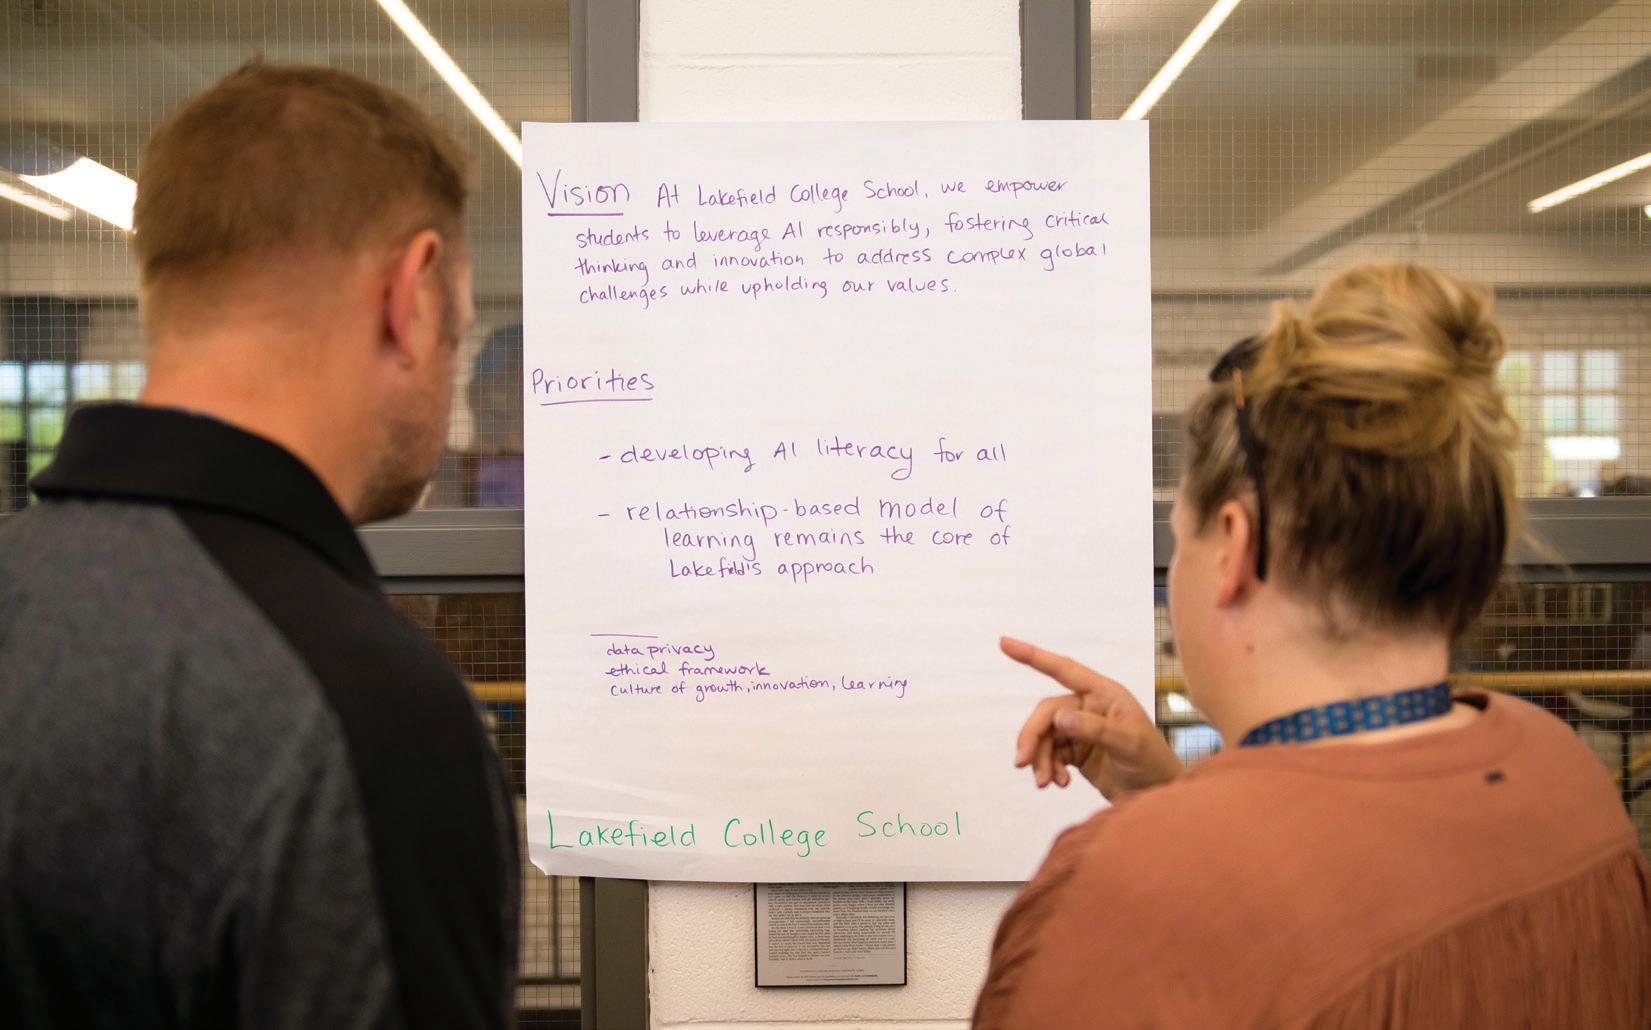 Vision At Lakefield College School, we empower
students to leverage AI responsibly, fostering critical
thinking and innovation to address complex global
challenges while upholding our values.
Priorities
- developing AI literacy for all
- relationship-based model of
learning remains the core of
Lakefield's approach
data privacy
ethical framework
culture of growth, innovation, learning
Lakefield College School